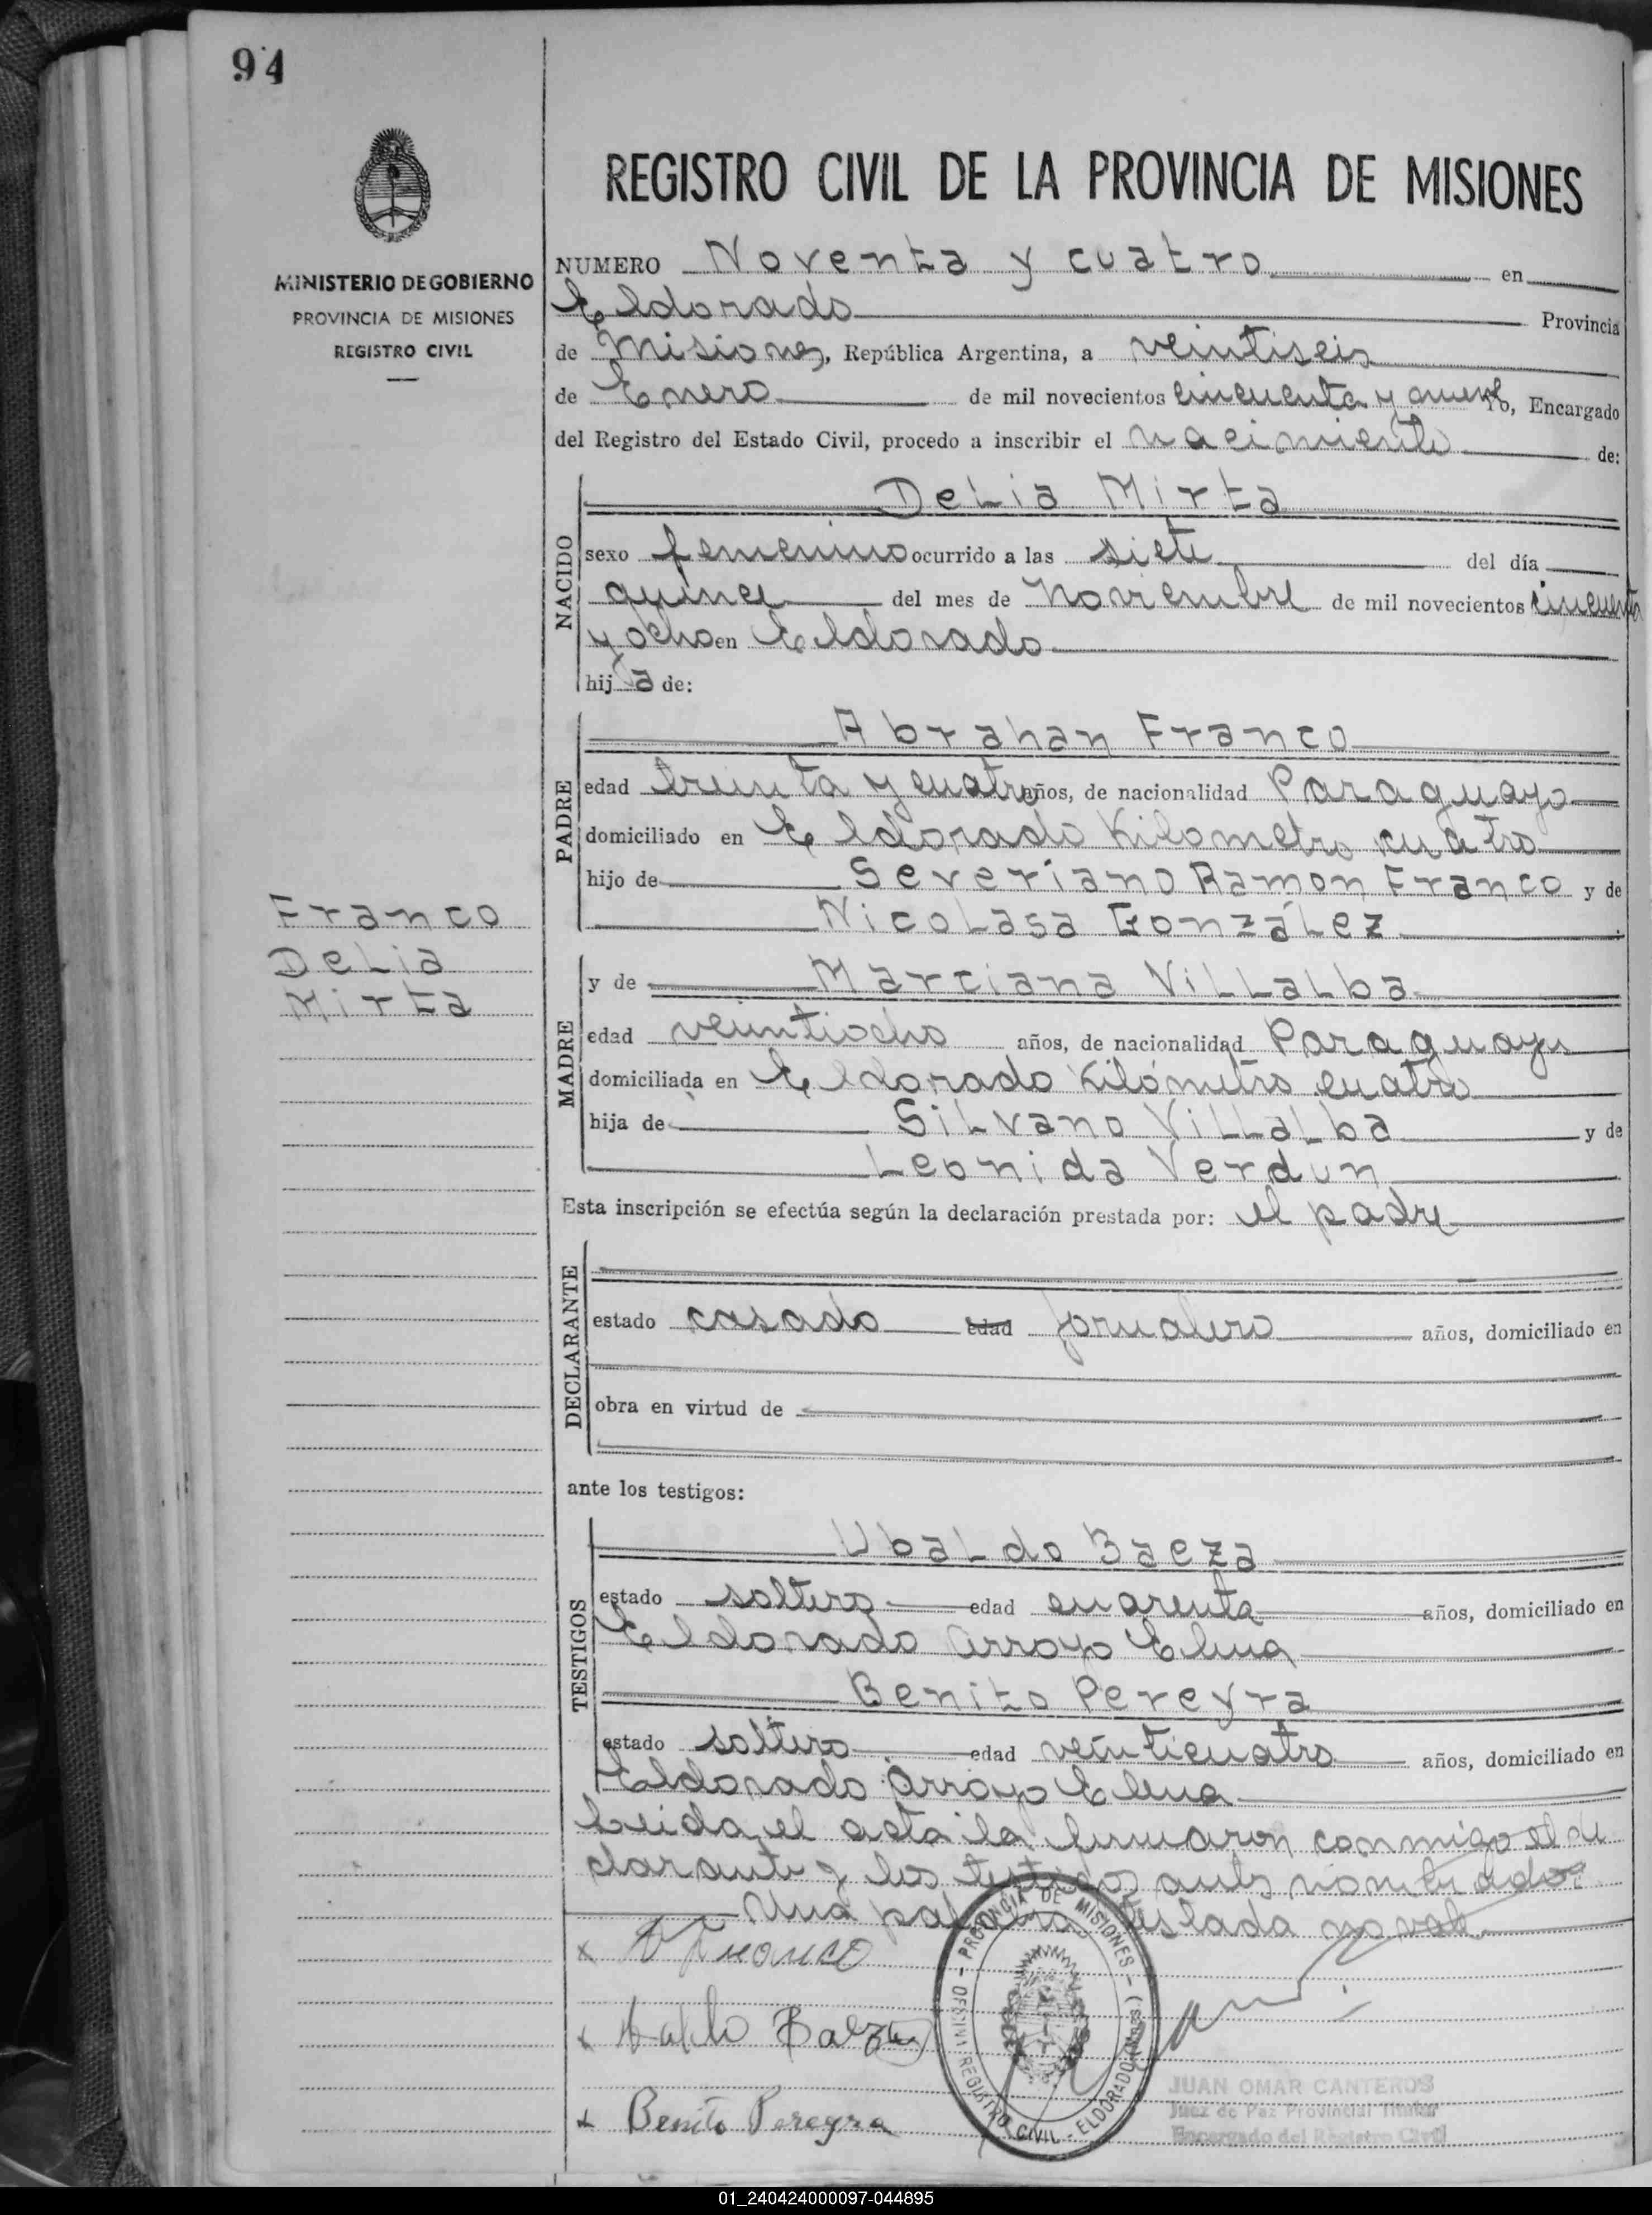 94
MINISTERIO DE GOBIERNO
PROVINCIA DE MISIONES
REGISTRO CIVIL
Franco
Delia
Mirta
REGISTRO CIVIL DE LA PROVINCIA DE MISIONES
NUMERO Noventa y cuatro en
Eldorado Provincia
de Misiones, República Argentina, a veintiseis
de Enero de mil novecientos cincuenta y nueve Yo, Encargado
del Registro del Estado Civil, procedo a inscribir el nacimiento de:
NACIDO
Delia Mirta
sexo femenino ocurrido a las siete del día
quince del mes de Noviembre de mil novecientos cincuenta
y ocho en Eldorado
hij a de:
PADRE
Abrahan Franco
edad treinta y cuatro años, de nacionalidad Paraguayo
domiciliado en Eldorado Kilometro cuatro
hijo de Severiano Ramon Franco y de
Nicolasa González
MADRE
y de Marciana Villalba
edad veintiocho años, de nacionalidad Paraguaya
domiciliada en Eldorado Kilómetro cuatro
hija de Silvano Villalba y de
Leonida Verdun
Esta inscripción se efectúa según la declaración prestada por: el padre
DECLARANTE
estado casado edad jornalero años, domiciliado en
obra en virtud de
ante los testigos:
TESTIGOS
Ubaldo Baeza
estado soltero edad cuarenta años, domiciliado en
Eldorado Arroyo Elena
Benito Pereyra
estado soltero edad veinticuatro años, domiciliado en
Eldorado Arroyo Elena
Leida el acta la firmaron conmigo el de
clarante y los testigos antes nombrados
Una palabra testada no vale
x A Franco
x Baeza
x Benito Pereyra
PROVINCIA DE MISIONES
REGISTRO CIVIL - ELDORADO
JUAN OMAR CANTEROS
Juez de Paz Provincial Titular
Encargado del Registro Civil
01_240424000097-044895